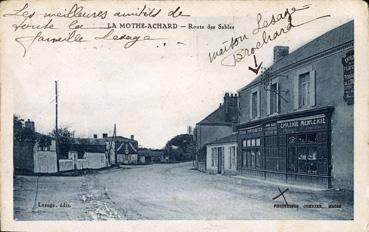 Les meilleures amitiés de
toute la
famille Lesage.
LA MOTHE-ACHARD — Route des Sables
maison Lesage
Brochard
EPICERIE MERCERIE
Lesage, édit.